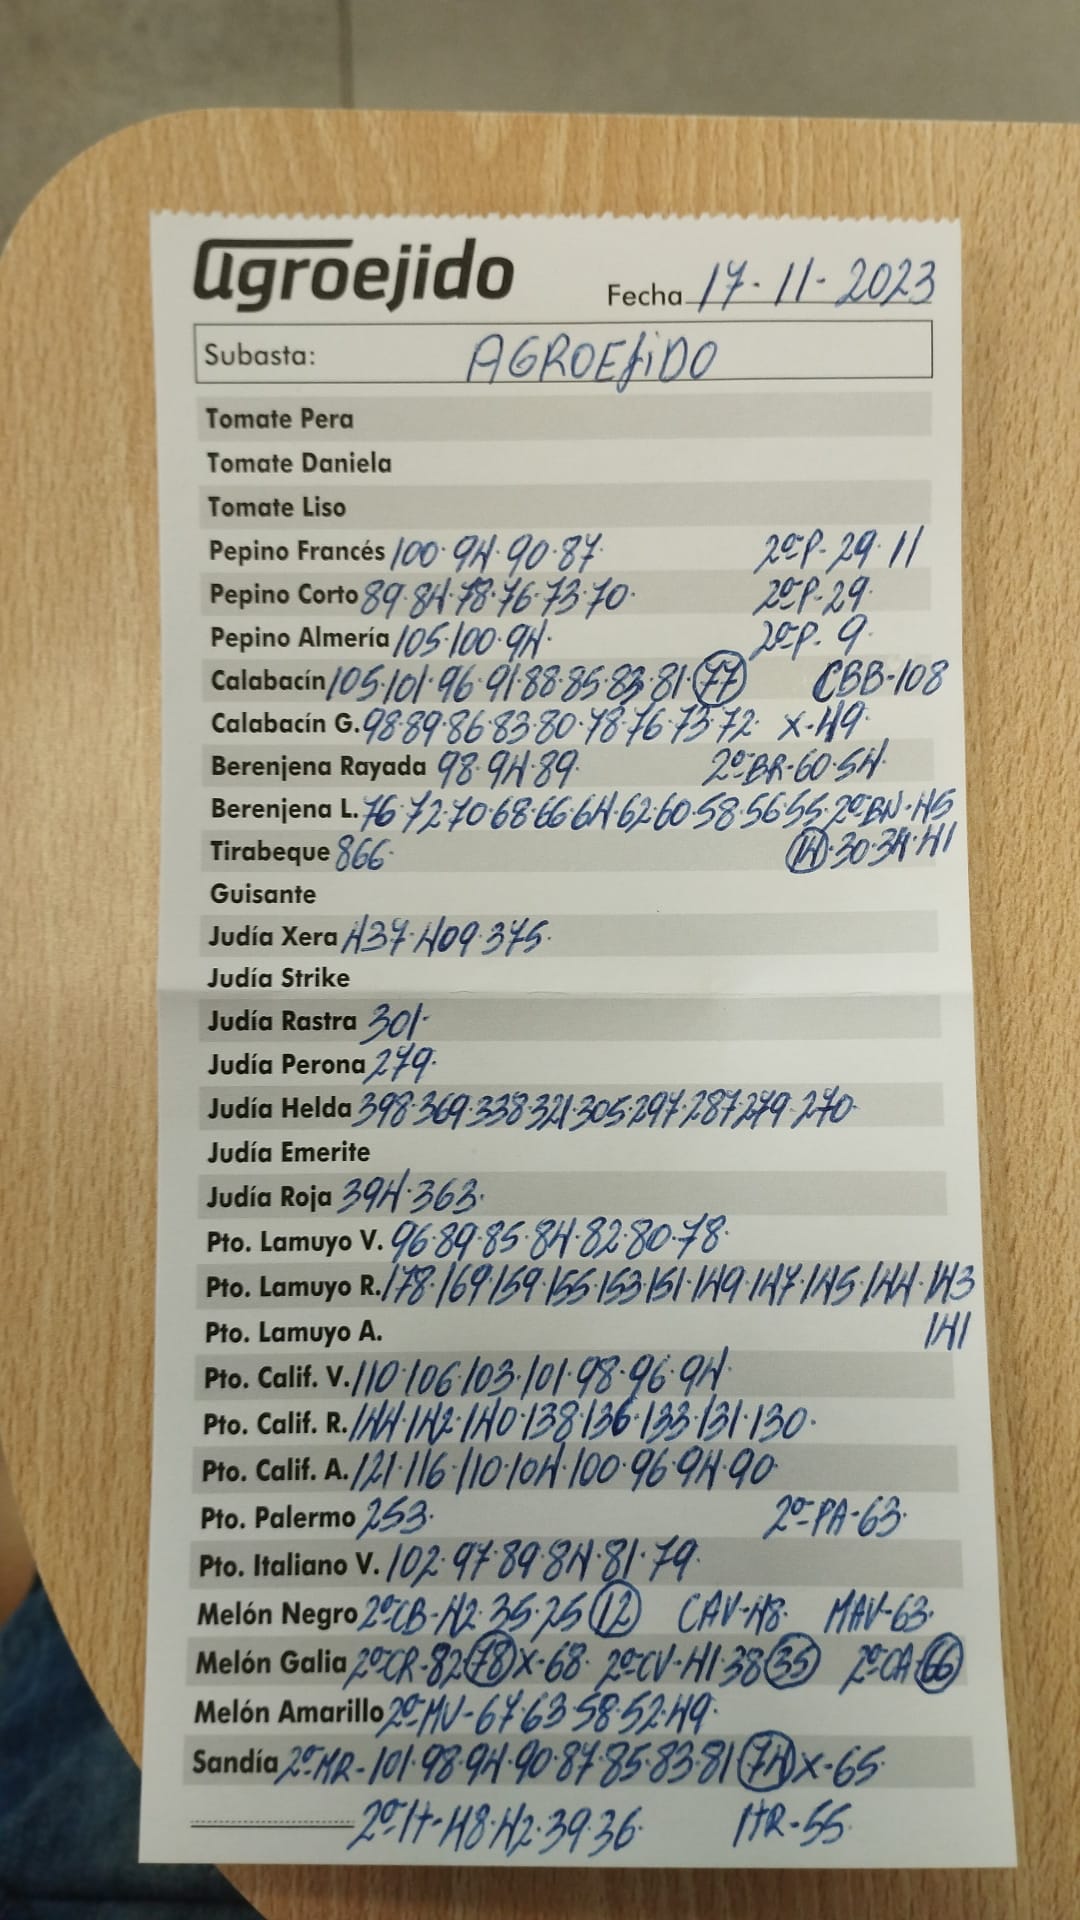 agroejido Fecha 17-11-2023
Subasta: AGROEJIDO
Tomate Pera
Tomate Daniela
Tomate Liso
Pepino Francés 100·94·90·87 2ªP-29·11
Pepino Corto 89·84·78·76·73·70· 2ªP-29·
Pepino Almería 105·100·94· 2ªP-9·
Calabacín 105·101·96·91·88·85·83·81·77 CBB-108
Calabacín G. 98·89·86·83·80·78·76·73·72· X-49·
Berenjena Rayada 98·94·89· 2ªBR-60·54·
Berenjena L. 76·72·70·68·66·64·62·60·58·56·55· 2ªBN-45
Tirabeque 866· 14·30·34·41
Guisante
Judía Xera 437·409·375·
Judía Strike
Judía Rastra 301·
Judía Perona 279·
Judía Helda 398·369·338·321·305·297·287·279·270·
Judía Emerite
Judía Roja 394·363·
Pto. Lamuyo V. 96·89·85·84·82·80·78·
Pto. Lamuyo R. 178·169·159·155·153·151·149·147·145·144·143
Pto. Lamuyo A. 141
Pto. Calif. V. 110·106·103·101·98·96·94·
Pto. Calif. R. 144·142·140·138·136·133·131·130·
Pto. Calif. A. 121·116·110·104·100·96·94·90·
Pto. Palermo 253· 2ª-PA-63·
Pto. Italiano V. 102·97·89·84·81·79·
Melón Negro 2ªCB-42·35·25 12 CAV-48· MAV-63·
Melón Galia 2ªCR-82 78 X-68· 2ªCV-41·38 35 2ªCA-66
Melón Amarillo 2ªMV-67·63·58·52·49·
Sandía 2ªMR-101·98·94·90·87·85·83·81 74 X-65·
2ªIt-48·42·39·36· ItR-55·